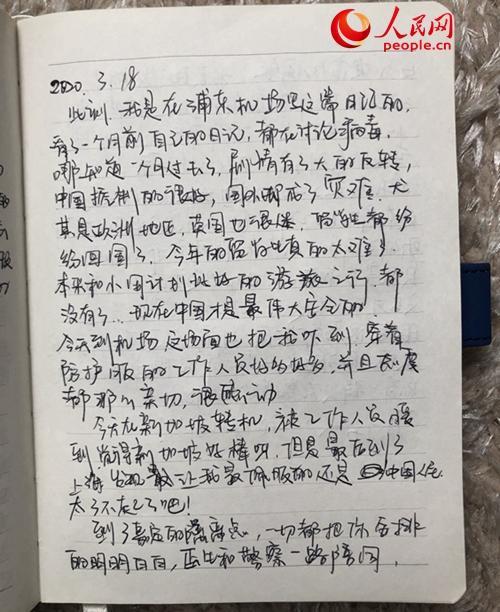 人民网
people.cn
2020. 3. 18
此刻，我是在浦东机场里写这篇日记的.
看了一个月前自己的日记，都在讨论病毒.
哪知道一个月过去了，剧情有了大的反转，
中国控制的很好，国外却成了灾难. 尤
其是欧洲地区，英国也很惨，留学生都纷
纷回国了. 今年的留学生真的太难了.
本来和小周计划好的游 之行，都
没有了. 现在中国才是最伟大安全的.
今天到机场这场面也把我吓到，穿着
防护服的工作人员好多好多，并且态度
都那么亲切，很感动
今天在新加坡转机，被工作人员暖
到觉得新加坡好棒呀，但是最后到了
上海发现最让我最佩服的还是中国人
太了不起了吧！
到了嘉定的隔离点，一切都把你安排
的明明白白，医生和警察一路陪同，